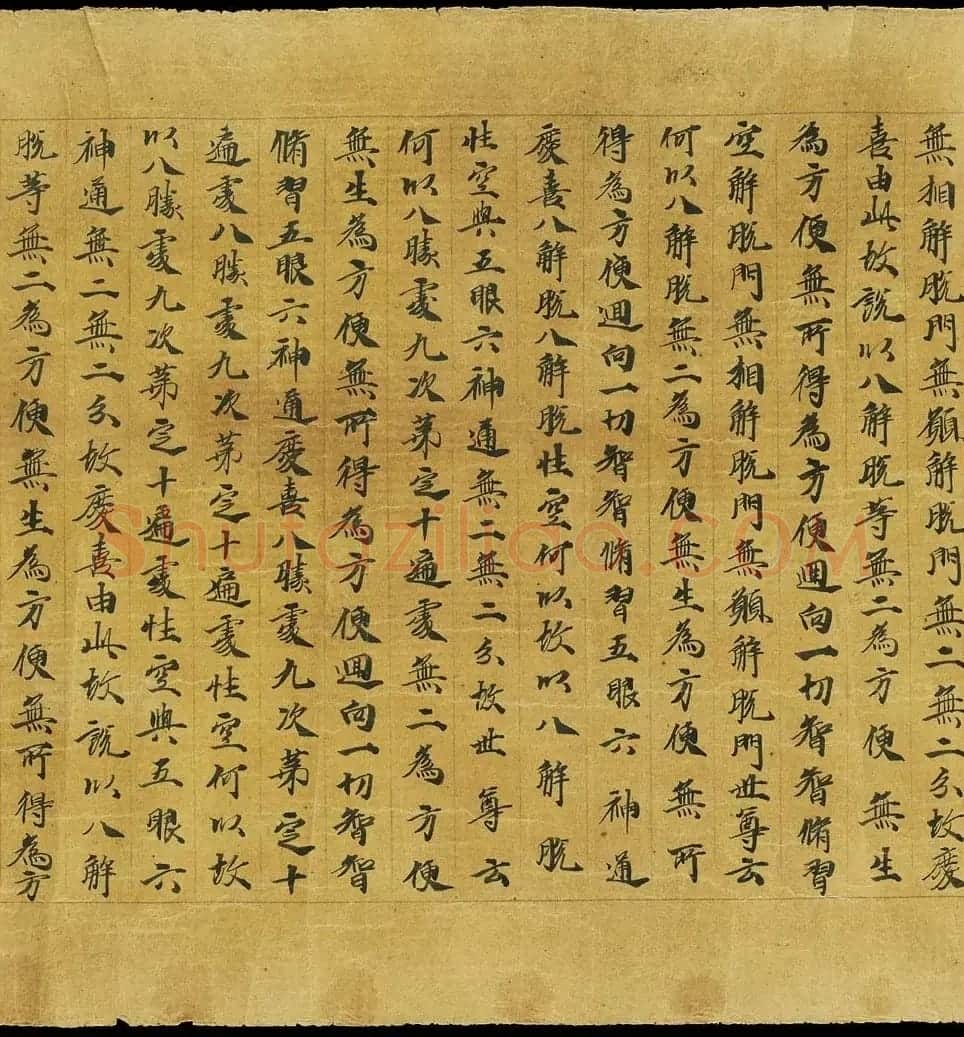 無相解脫門無願解脫門無二無二分故慶
喜由此故說以八解脫等無二為方便無生
為方便無所得為方便迴向一切智智脩習
空解脫門無相解脫門無願解脫門世尊云
何以八解脫無二為方便無生為方便無所
得為方便迴向一切智智脩習五眼六神通
慶喜八解脫八解脫性空何以故以八解脫
性空與五眼六神通無二無二分故世尊云
何以八勝處九次第定十遍處無二為方便
無生為方便無所得為方便迴向一切智智
脩習五眼六神通慶喜八勝處九次第定十
遍處八勝處九次第定十遍處性空何以故
以八勝處九次第定十遍處性空與五眼六
神通無二無二分故慶喜由此故說以八解
脫等無二為方便無生為方便無所得為方
Shufaziliao.COM